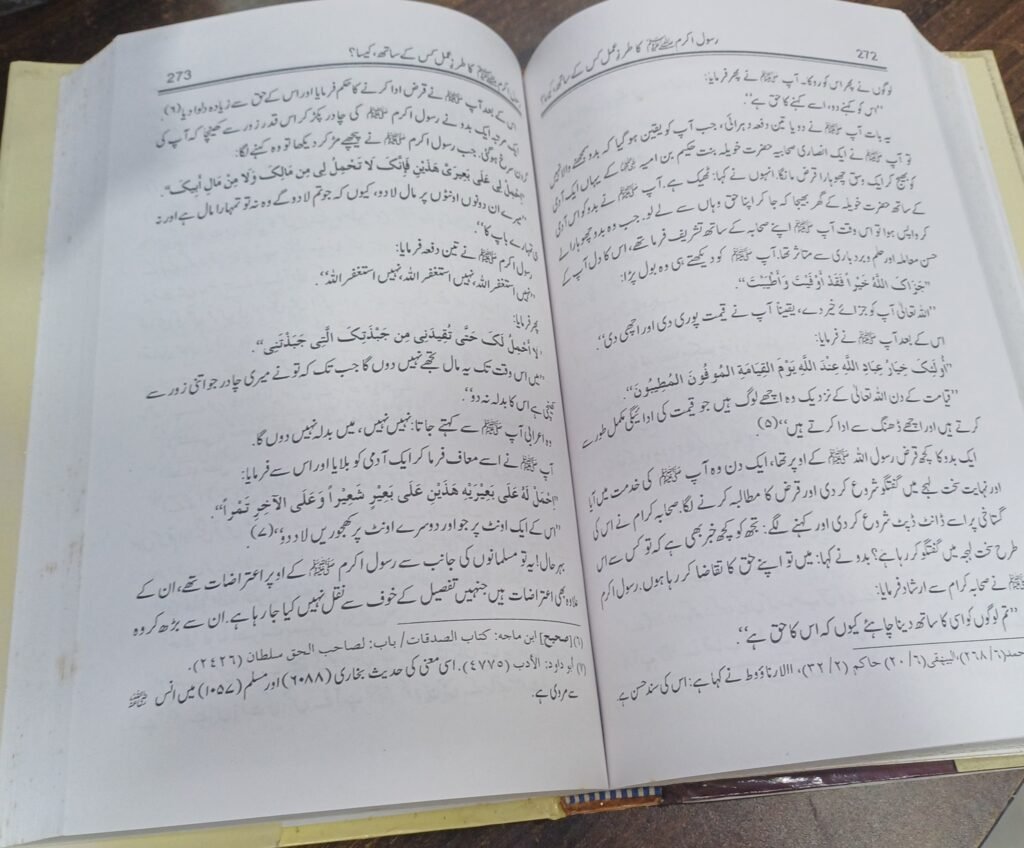 272
رسول اکرم ﷺ کا طرزِ عمل کس کے ساتھ، کیسا؟
لوگوں نے پھر اس کو روکا۔ آپ ﷺ نے پھر فرمایا:
”اس کو کہنے دو، اسے کہنے کا حق ہے“۔
یہ بات آپ ﷺ نے دو یا تین دفعہ دہرائی، جب آپ کو یقین ہوگیا کہ بدو سمجھنے والا نہیں
تو آپ ﷺ نے ایک انصاری صحابیہ حضرت خویلہ بنت حکیم بن امیہ کے یہاں ایک آدمی
کو بھیج کر ایک وسق چھوہارا قرض مانگا۔ انہوں نے کہا: ٹھیک ہے۔ آپ ﷺ نے بدو کو اس آدمی
کے ساتھ حضرت خویلہ کے گھر بھیجا کہ جا کر اپنا حق وہاں سے لے لو۔ جب وہ بدو چھوہارا لے
کر واپس ہوا تو اس وقت آپ ﷺ اپنے صحابہ کے ساتھ تشریف فرما تھے، اس کا دل آپ کے
حسن معاملہ اور حلم و بردباری سے متاثر تھا۔ آپ ﷺ کو دیکھتے ہی وہ بول پڑا:
”جَزَاكَ اللّٰهُ خَيْراً فَقَدْ أَوْفَيْتَ وَأَطْيَبْتَ“۔
”اللہ تعالیٰ آپ کو جزائے خیر دے، یقیناً آپ نے قیمت پوری دی اور اچھی دی“۔
اس کے بعد آپ ﷺ نے فرمایا:
”أُولٰئِكَ خِيَارُ عِبَادِ اللّٰهِ عِنْدَ اللّٰهِ يَوْمَ القِيَامَةِ المُوفُونَ المُطِيبُونَ“۔
”قیامت کے دن اللہ تعالیٰ کے نزدیک وہ اچھے لوگ ہیں جو قیمت کی ادائیگی مکمل طور سے
کرتے ہیں اور اچھے ڈھنگ سے ادا کرتے ہیں“ (۵)۔
ایک بدو کا کچھ قرض رسول اللہ ﷺ کے اوپر تھا، ایک دن وہ آپ ﷺ کی خدمت میں آیا
اور نہایت سخت لہجے میں گفتگو شروع کردی اور قرض کا مطالبہ کرنے لگا۔ صحابہ کرام نے اس کی
گستاخی پر اسے ڈانٹ ڈپٹ شروع کردی اور کہنے لگے: تجھ کو کچھ خبر بھی ہے کہ تو کس سے اس
طرح سخت لہجہ میں گفتگو کر رہا ہے؟ بدو نے کہا: میں تو اپنے حق کا تقاضا کر رہا ہوں۔ رسول اکرم
ﷺ نے صحابہ کرام سے ارشاد فرمایا:
”تم لوگوں کو اسی کا ساتھ دینا چاہئے کیوں کہ اس کا حق ہے“۔
(۲۶۸/۶)، البیہقی (۲۰/۶) حاکم (۳۲/۲)، الارناؤوط نے کہا ہے: اس کی سند حسن ہے۔
اکرم ﷺ کا طرزِ عمل کس کے ساتھ، کیسا؟
273
اس کے بعد آپ ﷺ نے قرض ادا کرنے کا حکم فرمایا اور اس کے حق سے زیادہ دلوا دیا (۶)
ایک مرتبہ ایک بدو نے رسول اکرم ﷺ کی چادر پکڑ کر اس قدر زور سے کھینچا کہ آپ کی
گردن سرخ ہوگئی۔ جب رسول اکرم ﷺ نے پیچھے مڑ کر دیکھا تو وہ کہنے لگا:
”اِحْمِلْ لِی عَلَی بَعِیرَیَّ هَذَیْنِ فَإِنَّکَ لَا تَحْمِلُ لِی مِنْ مَالِکَ وَلَا مِنْ مَالِ أَبِیکَ“۔
”میرے ان دونوں اونٹوں پر مال لاد دو، کیوں کہ جو تم لادو گے وہ نہ تو تمہارا مال ہے اور نہ
ہی تمہارے باپ کا“۔
رسول اکرم ﷺ نے تین دفعہ فرمایا:
”نہیں استغفر اللہ، نہیں استغفر اللہ، نہیں استغفر اللہ“۔
پھر فرمایا:
”لَا أَحْمِلُ لَکَ حَتَّی تُقِیدَنِی مِن جَبْذَتِکَ الَّتِی جَبَذْتَنِی“۔
”میں اس وقت تک یہ مال تجھے نہیں دوں گا جب تک کہ تو نے میری چادر جو اتنی زور سے
کھینچی ہے اس کا بدلہ نہ دو“۔
وہ اعرابی آپ ﷺ سے کہتے جاتا: نہیں نہیں، میں بدلہ نہیں دوں گا۔
آپ ﷺ نے اسے معاف فرما کر ایک آدمی کو بلایا اور اس سے فرمایا:
”اِحْمِلْ لَهُ عَلَی بَعِیرَیْهِ هَذَیْنِ عَلَی بَعِیرٍ شَعِیْراً وَعَلَی الآخِرِ تَمْراً“۔
”اس کے ایک اونٹ پر جو اور دوسرے اونٹ پر کھجوریں لاد دو“ (۷)۔
بہرحال! یہ تو مسلمانوں کی جانب سے رسول اکرم ﷺ کے اوپر اعتراضات تھے، ان کے
علاوہ بھی اعتراضات ہیں جنہیں تفصیل کے خوف سے نقل نہیں کیا جا رہا ہے۔ ان سے بڑھ کر وہ
(۶) [صحیح] ابن ماجه: کتاب الصدقات/ باب: لصاحب الحق سلطان (۲٤۲٦)۔
(۷) ابو داود: الأدب (٤۷۷۵)۔ اسی معنی کی حدیث بخاری (۶۰۸۸) اور مسلم (۱۰۵۷) میں انس
سے مروی ہے۔